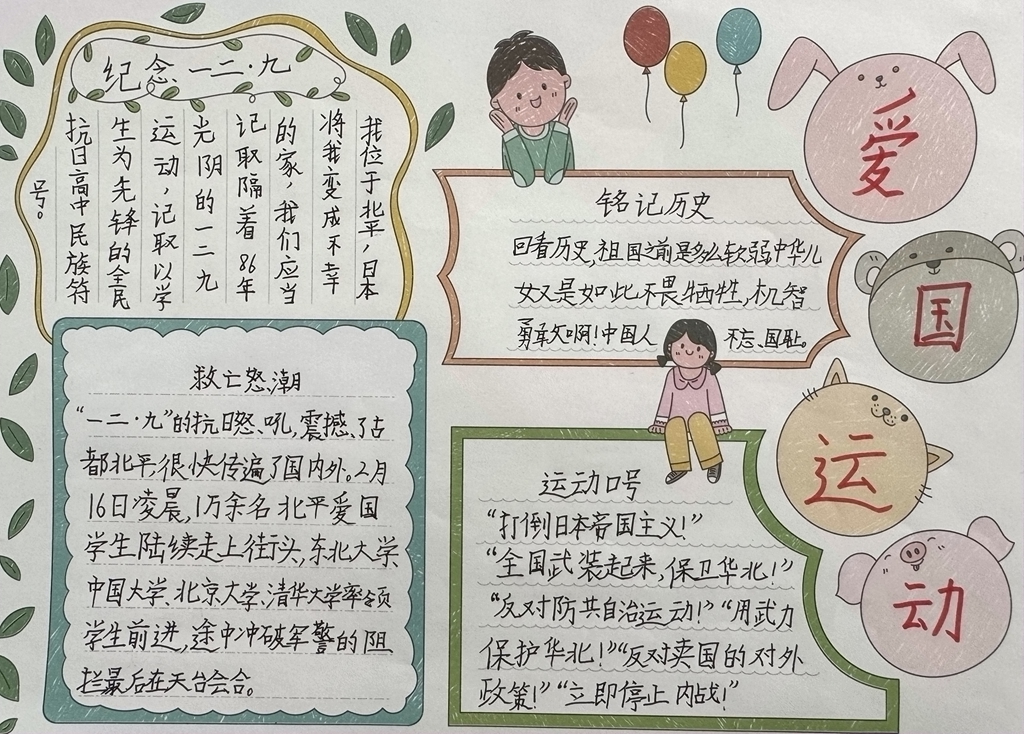 纪念一二·九
我位于北平，日本
将我变成不幸
的家，我们应当
记取隔着86年
光阴的一二九
运动，记取以学
生为先锋的全民
抗日高中民族符
号。
铭记历史
回看历史，祖国之前是多么软弱中华儿
女又是如此不畏牺牲，机智
勇敢啊！中国人 不忘、国耻。
爱
国
运
动
救亡怒潮
“一二·九”的抗日怒吼，震撼了古
都北平，很快传遍了国内外。2月
16日凌晨，1万余名北平爱国
学生陆续走上街头，东北大学、
中国大学、北京大学、清华大学率领
学生前进，途中冲破军警的阻
拦最后在天台会合。
运动口号
“打倒日本帝国主义！”
“全国武装起来，保卫华北！”
“反对防共自治运动！”“用武力
保护华北！”“反对卖国的对外
政策！”“立即停止内战！”